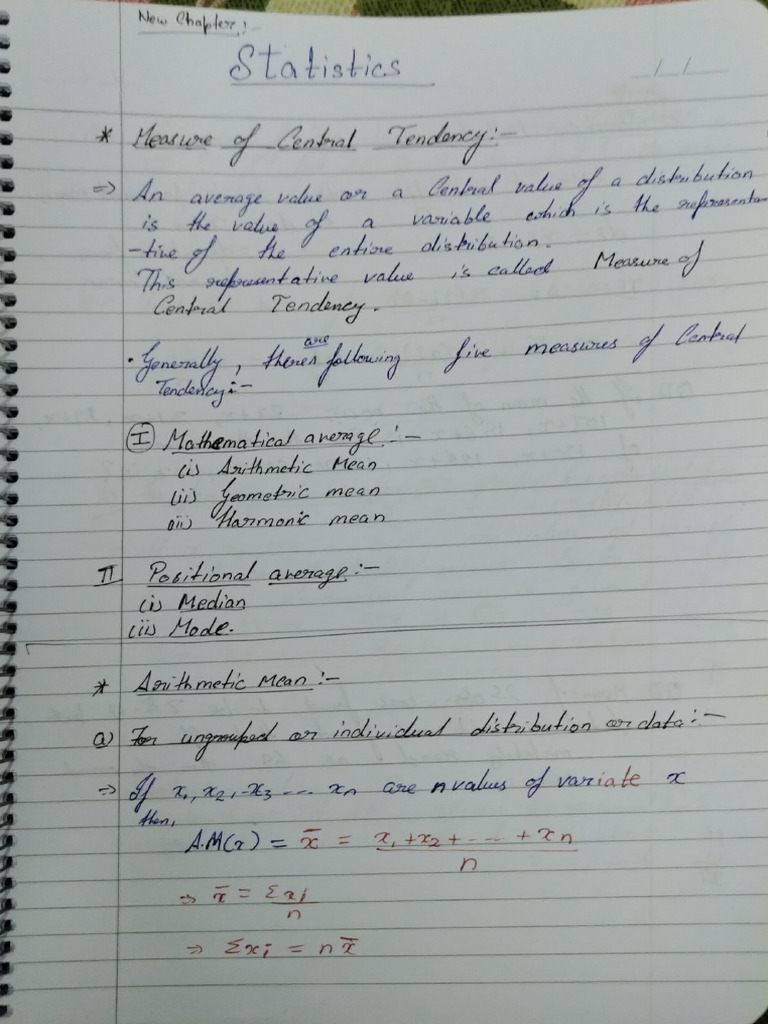 New Chapter:-
Statistics
/ /
* Measure of Central Tendency:-
=> An average value or a Central value of a distribution
is the value of a variable which is the representa-
-tive of the entire distribution.
This representative value is called Measure of
Central Tendency.
• Generally, there are following five measures of Central
Tendency:-
(I) Mathematical average:-
(i) Arithmetic Mean
(ii) Geometric mean
(iii) Harmonic mean
II Positional average:-
(i) Median
(ii) Mode.
* Arithmetic Mean:-
a) For ungrouped or individual distribution or data:-
=> If x₁, x₂, x₃ .... xₙ are n values of variate x
then,
A.M(x) = x̄ = (x₁ + x₂ + .... + xn) / n
=> x̄ = Σxi / n
=> Σxi = n x̄